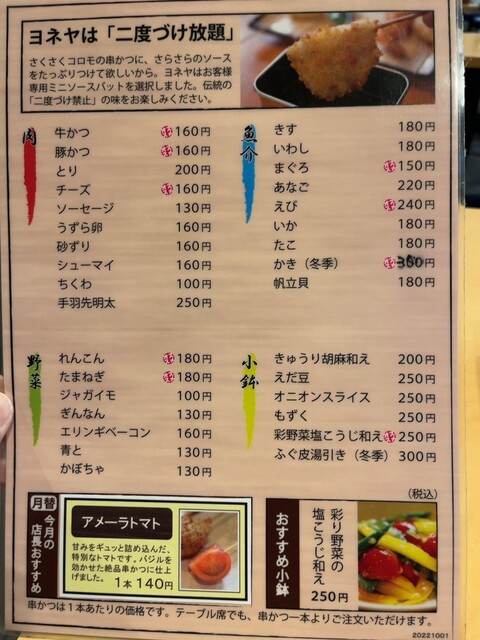 ヨネヤは「二度づけ放題」
さくさくコロモの串かつに、さらさらのソース
をたっぷりつけて欲しいから。ヨネヤはお客様
専用ミニソースバットを選択しました。伝統の
「二度づけ禁止」の味をお楽しみください。
肉
牛かつ 160円
豚かつ 160円
とり 200円
チーズ 160円
ソーセージ 130円
うずら卵 160円
砂ずり 160円
シューマイ 160円
ちくわ 100円
手羽先明太 250円
魚介
きす 180円
いわし 180円
まぐろ 150円
あなご 220円
えび 240円
いか 180円
たこ 180円
かき（冬季） 円
帆立貝 180円
野菜
れんこん 180円
たまねぎ 180円
ジャガイモ 100円
ぎんなん 130円
エリンギベーコン 160円
青と 130円
かぼちゃ 130円
小鉢
きゅうり胡麻和え 200円
えだ豆 250円
オニオンスライス 250円
もずく 250円
彩野菜塩こうじ和え 250円
ふぐ皮湯引き（冬季） 300円
（税込）
月替
今月の
店長おすすめ
アメーラトマト
甘みをギュッと詰め込んだ、
特別なトマトです。バジルを
効かせた絶品串かつに仕上
げました。
1本 140円
おすすめ小鉢
彩り野菜の
塩こうじ和え
250円
串かつは1本あたりの価格です。テーブル席でも、串かつ一本よりご注文いただけます。
20221001